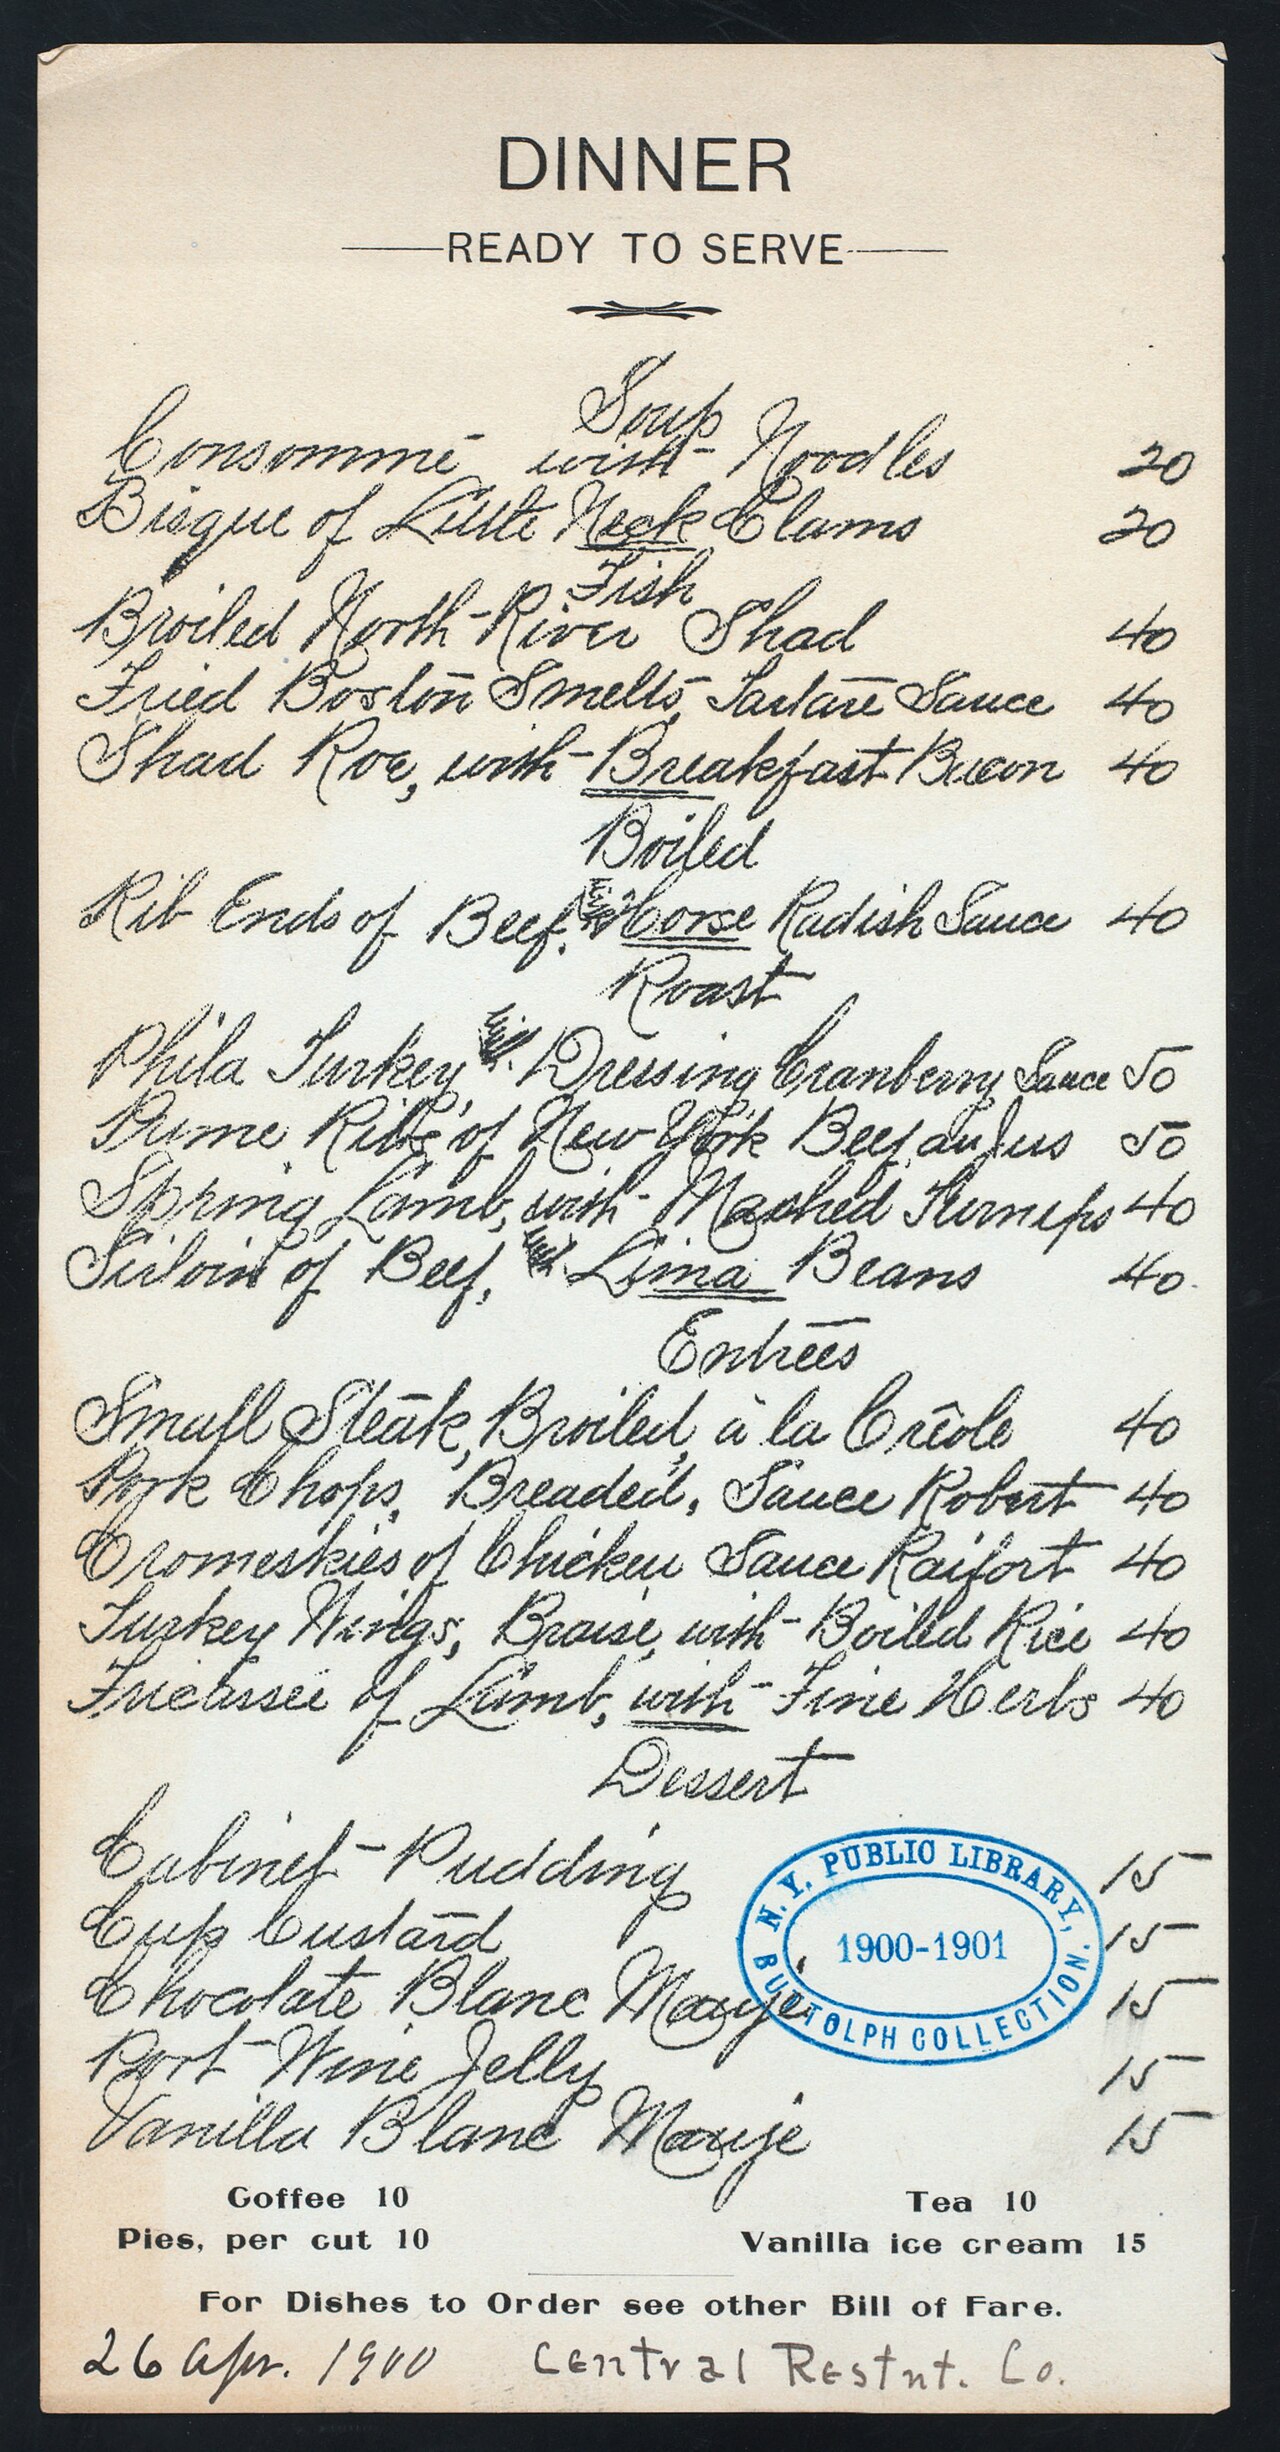 DINNER
READY TO SERVE
Soup
Consommé with Noodles 20
Bisque of Little Neck Clams 20
Fish
Broiled North River Shad 40
Fried Boston Smelts, Tartare Sauce 40
Shad Roe, with Breakfast Bacon 40
Boiled
Rib Ends of Beef, Horse Radish Sauce 40
Roast
Phila Turkey, Dressing Cranberry Sauce 50
Prime Ribs of New York Beef au Jus 50
Spring Lamb, with Mashed Turnips 40
Sirloin of Beef, Lima Beans 40
Entrées
Small Steak, Broiled, à la Créole 40
Pork Chops, Breaded, Sauce Robert 40
Cromeskies of Chicken Sauce Raifort 40
Turkey Wings, Braise, with Boiled Rice 40
Fricassee of Lamb, with Fine Herbs 40
Dessert
Cabinet Pudding 15
Cup Custard 15
Chocolate Blanc Mange 15
Port Wine Jelly 15
Vanilla Blanc Mange 15
N.Y. PUBLIC LIBRARY,
1900-1901
BUTTOLPH COLLECTION.
Coffee 10 Tea 10
Pies, per cut 10 Vanilla ice cream 15
For Dishes to Order see other Bill of Fare.
26 Apr. 1900 Central Restnt. Co.